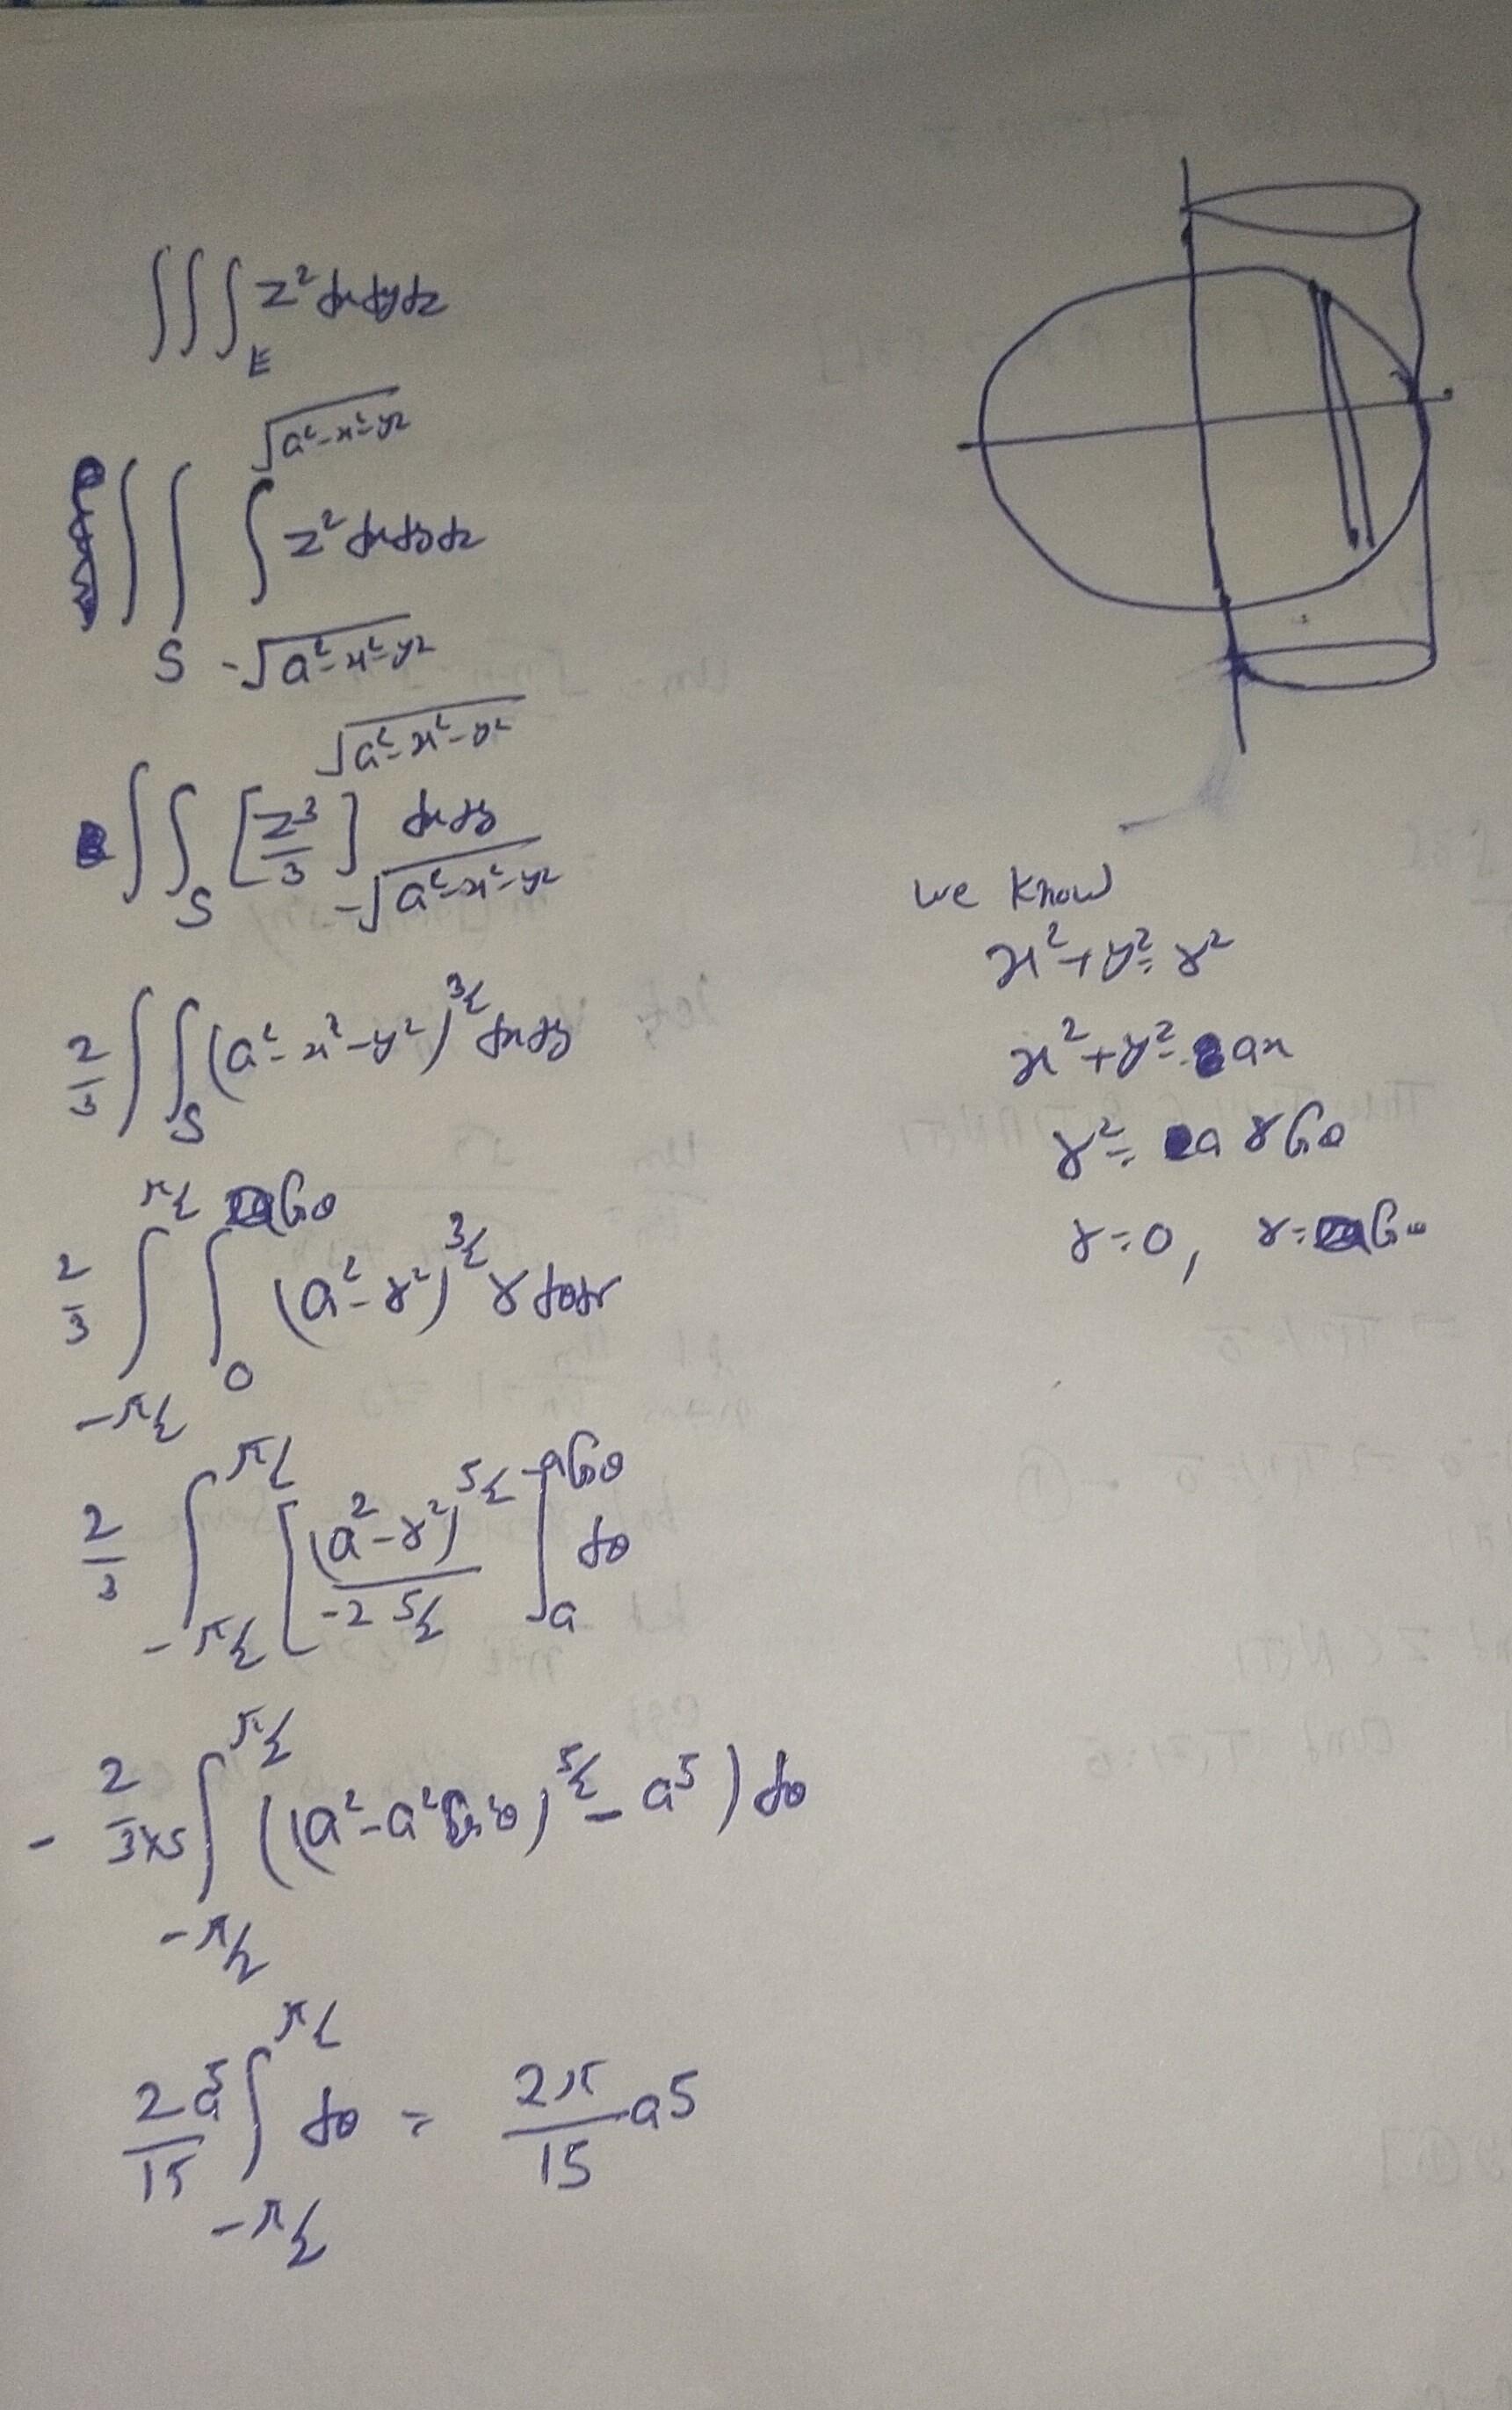 ∫∫∫_E z² dx dy dz
∫∫_S ∫_{-√(a²-x²-y²)}^{√(a²-x²-y²)} z² dx dy dz
∫∫_S [z³/3]_{-√(a²-x²-y²)}^{√(a²-x²-y²)} dx dy
2/3 ∫∫_S (a²-x²-y²)^{3/2} dx dy
2/3 ∫_{-π/2}^{π/2} ∫_0^{a cosθ} (a²-r²)^{3/2} r dθ dr
2/3 ∫_{-π/2}^{π/2} [(a²-r²)^{5/2} / -2 5/2]_a^{a cosθ} dθ
- 2/(3×5) ∫_{-π/2}^{π/2} ((a²-a²cos²θ)^{5/2} - a⁵) dθ
2a⁵/15 ∫_{-π/2}^{π/2} dθ = 2π/15 a5
we know
x²+y²=r²
x²+y²=ax
r²=a r cosθ
r=0, r=a cosθ